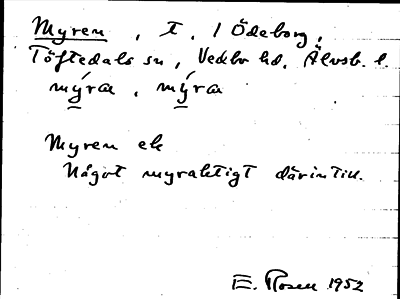 Myren, t. / Ödeborg,
Töftedals sn, Vedbo hd, Älvsb. l.
my̲´ra, my̲´ra
Myren ek
Något myraktigt därintill.
E. Rosell 1952